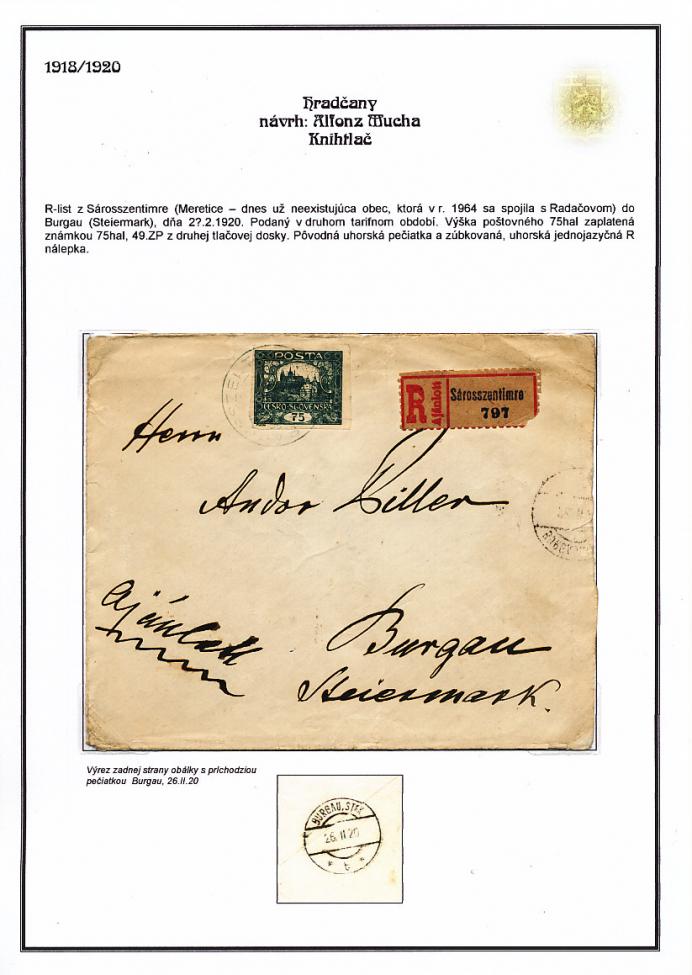 1918/1920
Hradčany
návrh: Alfonz Mucha
Kníhtlač
R-list z Sárosszentimre (Meretice – dnes už neexistujúca obec, ktorá v r. 1964 sa spojila s Radačovom) do
Burgau (Steiermark), dňa 2?.2.1920. Podaný v druhom tarifnom období. Výška poštovného 75hal zaplatená
známkou 75hal, 49.ZP z druhej tlačovej dosky. Pôvodná uhorská pečiatka a zúbkovaná, uhorská jednojazyčná R
nálepka.
POSTA
ČESKO-SLOVENSKÁ
75
R
Ajánlott
Sárosszentimre
797
Herrn
Andor Ziller
Ajánlott
Burgau
Steiermark.
Výrez zadnej strany obálky s príchodziou
pečiatkou Burgau, 26.II.20
BURGAU, STM.
26. II 20